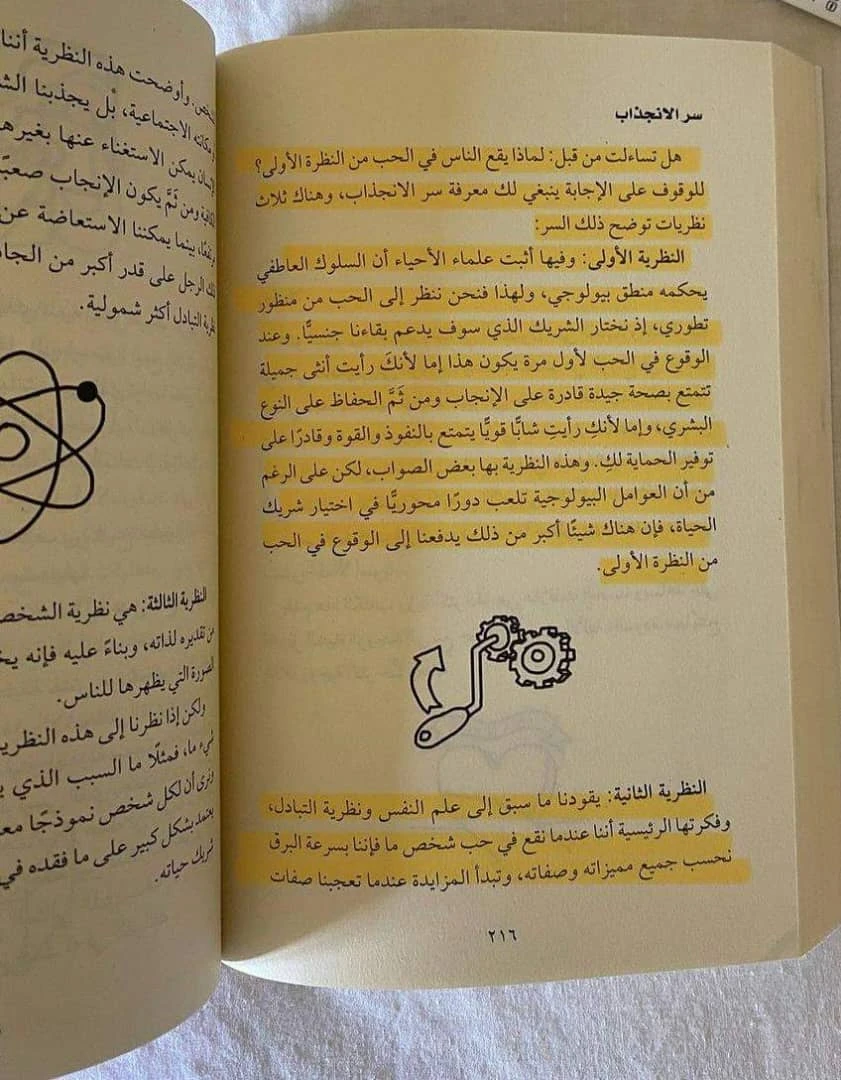 سر الانجذاب
هل تساءلت من قبل: لماذا يقع الناس في الحب من النظرة الأولى؟
للوقوف على الإجابة ينبغي لك معرفة سر الانجذاب، وهناك ثلاث
نظريات توضح ذلك السر:
النظرية الأولى: وفيها أثبت علماء الأحياء أن السلوك العاطفي
يحكمه منطق بيولوجي، ولهذا فنحن ننظر إلى الحب من منظور
تطوري، إذ نختار الشريك الذي سوف يدعم بقاءنا جنسيًّا. وعند
الوقوع في الحب لأول مرة يكون هذا إما لأنكَ رأيت أنثى جميلة
تتمتع بصحة جيدة قادرة على الإنجاب ومن ثَمَّ الحفاظ على النوع
البشري، وإما لأنكِ رأيتِ شابًّا قويًّا يتمتع بالنفوذ والقوة وقادرًا على
توفير الحماية لكِ. وهذه النظرية بها بعض الصواب، لكن على الرغم
من أن العوامل البيولوجية تلعب دورًا محوريًّا في اختيار شريك
الحياة، فإن هناك شيئًا أكبر من ذلك يدفعنا إلى الوقوع في الحب
من النظرة الأولى.
النظرية الثانية: يقودنا ما سبق إلى علم النفس ونظرية التبادل،
وفكرتها الرئيسية أننا عندما نقع في حب شخص ما فإننا بسرعة البرق
نحسب جميع مميزاته وصفاته، وتبدأ المزايدة عندما تعجبنا صفات
٢١٦
وأوضحت هذه النظرية أننا
مكانته الاجتماعية، بل يجذبنا
يمكن الاستغناء عنها بغيرها
ومن ثَمَّ يكون الإنجاب صعبًا
بينما يمكننا الاستعاضة عن
الرجل على قدر أكبر من
التبادل أكثر شمولية.
النظرية الثالثة: هي نظرية الشخص
من تقديره لذاته، وبناءً عليه فإنه
الصورة التي يظهرها للناس.
ولكن إذا نظرنا إلى هذه
ما، فمثلًا ما السبب الذي
ونرى أن لكل شخص نموذجًا
يعتمد بشكل كبير على ما فقده في
شريك حياته.